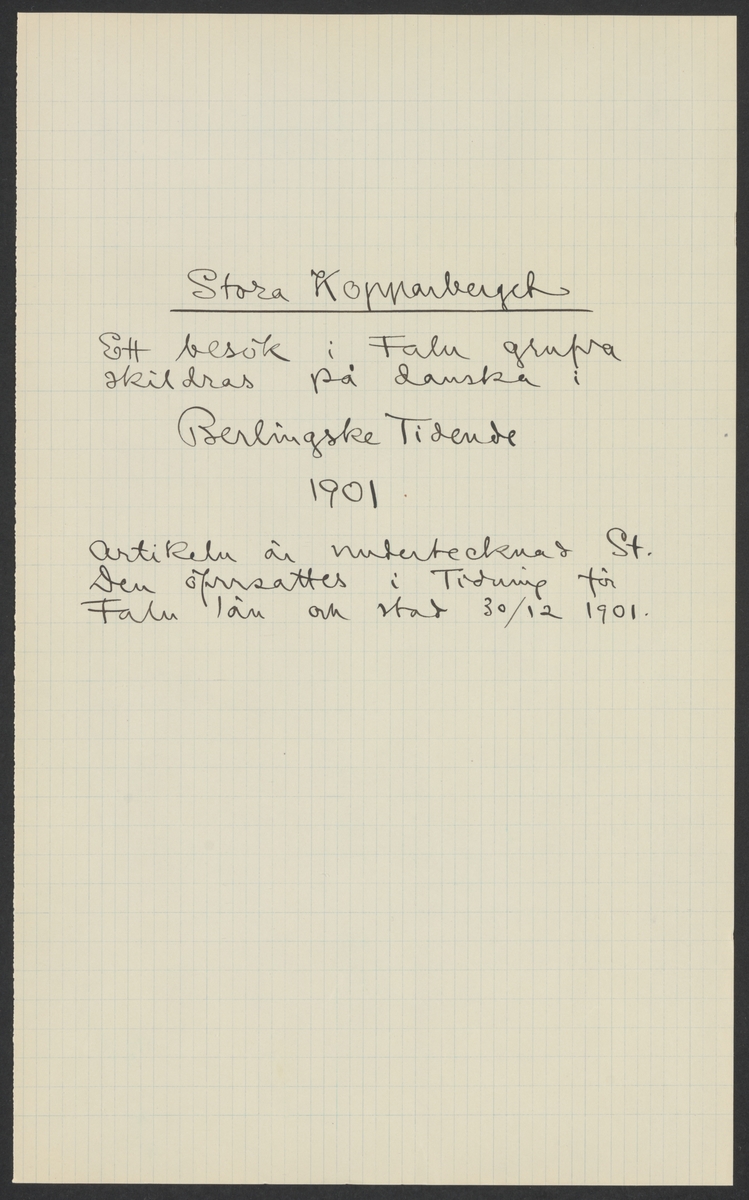 Stora Kopparberget
Ett besök i Falu gruva
skildras på danska i
Berlingske Tidende
1901.
Artikeln är undertecknad St.
Den översattes i Tidning för
Falu län och stad 30/12 1901.